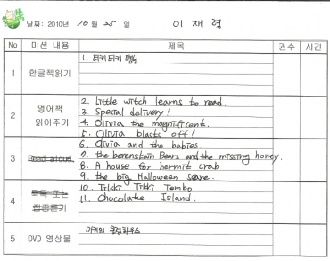 날짜: 2010년 10월 25일 이재혁
No 미션 내용 제목 권수 시간
1 한글책읽기 1. 티키티키
2 영어책 읽어주기
2. Little witch learns to read.
3. Special delivery!
4. Olivia the magnificent.
5. Olivia blasts off!
6. Olivia and the babies.
3 Read aloud
7. the berenstain Bears and the missing honey.
8. A house for hermit crab
9. the big Halloween scare.
4 또는 집중듣기
10. Tikki Tikki Tembo
11. Chocolate Island.
5 DVD 영상물